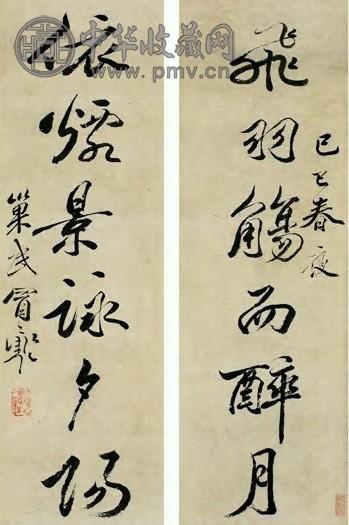 中华收藏网
www.pmv.cn
飛羽觴而醉月
己巳春夜
煙景詠夕陽
巢民冒襄